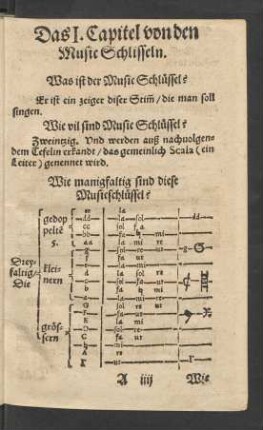 Das I. Capitel von den
Music Schlisseln.
Was ist der Music Schlüssel?
Er ist ein zeiger diser Stim̃/ die man soll
singen.
Wie vil sind Music Schlüssel?
Zweintzig. Vnd werden auß nachuolgen-
dem Tefelin erkandt/ das gemeinlich Scala (ein
Leiter) genennet wird.
Wie manigfaltig sind diese
Musicschlüssel?
Drey-
faltig/
Die
gedop
pelte
5.
klei-
nern
grös-
sern
ee la
dd la sol dd
cc sol fa
bb fa ♮ mi
aa la mi re
g sol re ut g
f fa ut
e la mi
d la sol re
c sol fa ut
b fa ♮ mi
a la mi re
G sol re ut
F fa ut
E la mi
D sol re
C fa ut
♮ mi
A re
Γ ut Γ
A iiij
Wie